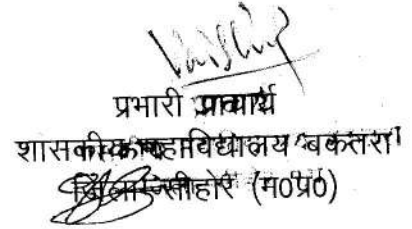 प्रभारी प्राचार्य
शासकीय महाविद्यालय बकतरा
जिला सीहोर (म0प्र0)